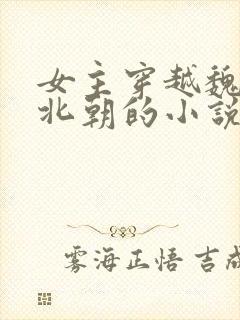 女主穿越魏
北朝的小說
雾海正悟 吉成